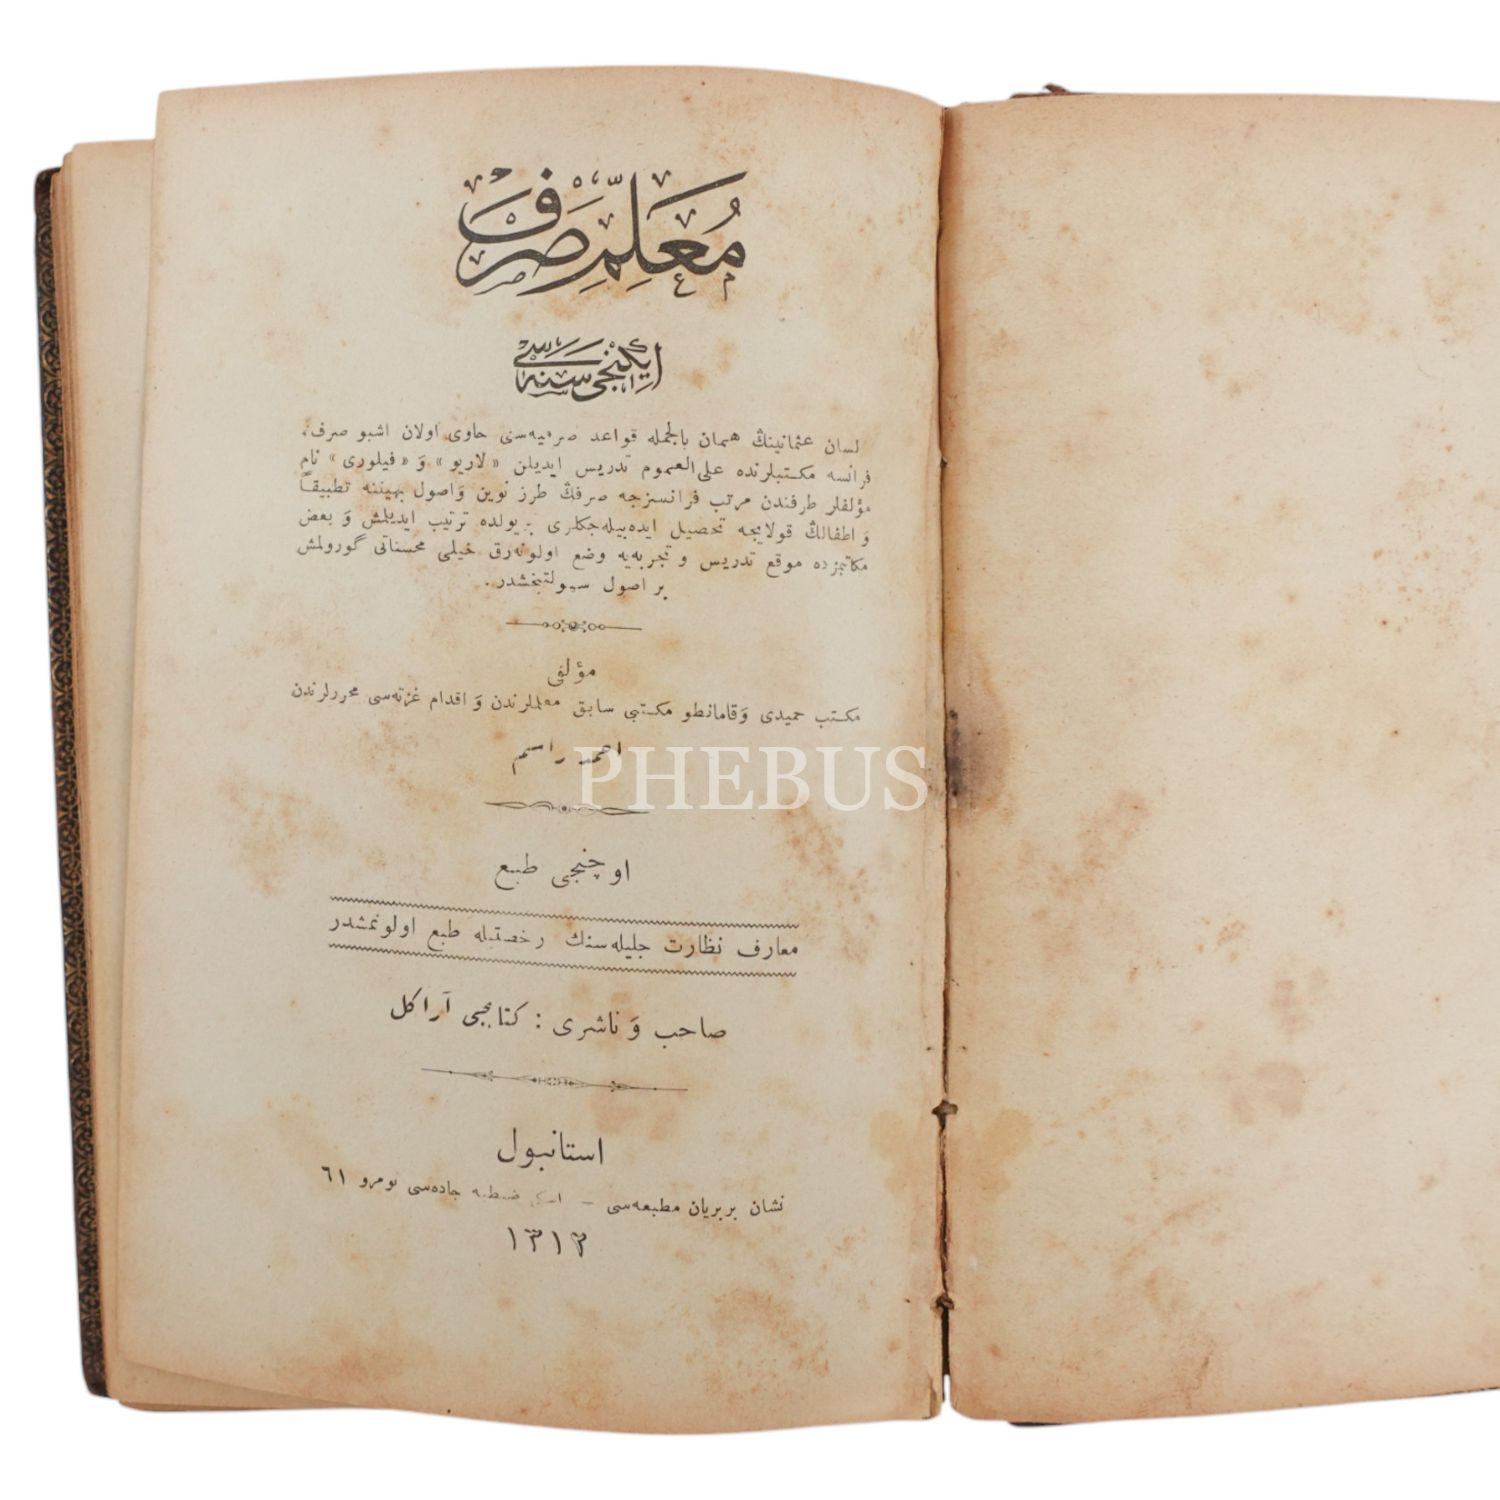 مُعَلِّمِ صَرْف
ایکنجی سنه‌سی
لسان عثمانینك همان بالجمله قواعد صرفیه‌سنی حاوی اولان اشبو صرف،
فرانسه مکتبلرنده علی‌العموم تدریس ایدیلن «لاریو» وَ «فیلوری» نام
مؤلفلر طرفندن مرتب فرانسزجه صرفڭ طرز نوین وَاصول بهیننه تطبیقاً
وَ اطفالڭ قولایجه تحصیل ایده‌بیله‌جکلری بریولده ترتیب ایدیلمش وَ بعض
مکاتبمزده موقع تدریس و تجربه‌یه وضع اولونه‌رق خیلی محسناتی گورولمش
بر اصول سهولتبخشدر.
مؤلفی
مکتب حمیدی وَقامانطو مکتبی سابق معلملرندن وَ اقدام غزته‌سی محررلرندن
احمد راسم
PHEBUS
اوچنجی طبع
معارف نظارت جلیله‌سنك رخصتیله طبع اولونمشدر
صاحب وَ ناشری : کتابجی آراکل
استانبول
نشان بربریان مطبعه‌سی — اسکی ضبطیه جاده‌سی نومرو ٦١
١٣١٣